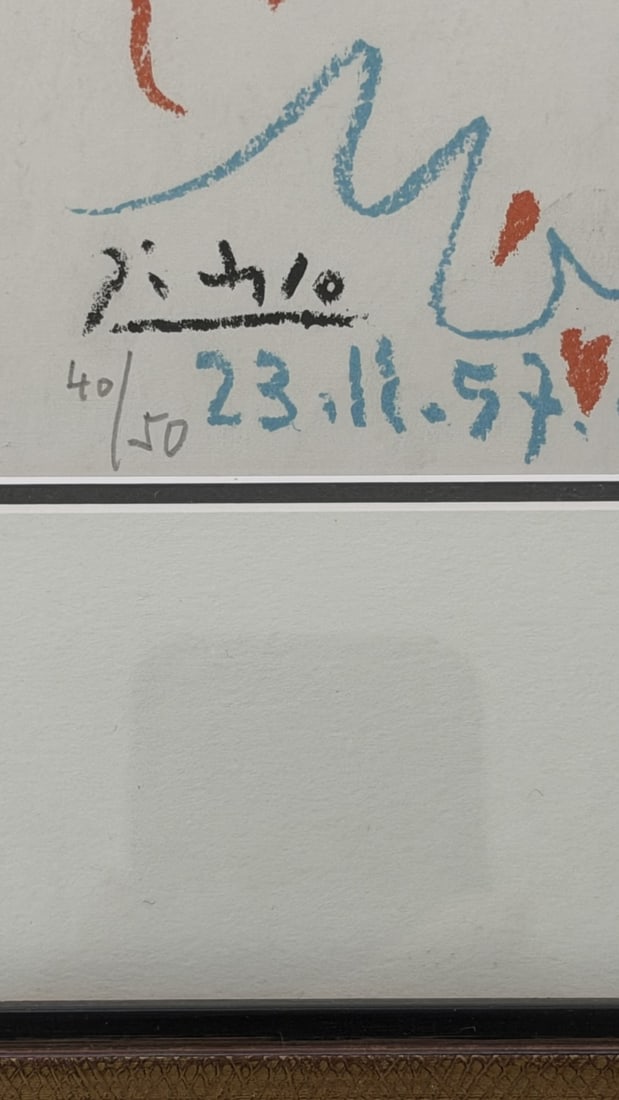 Picasso
40/50
23.11.57.